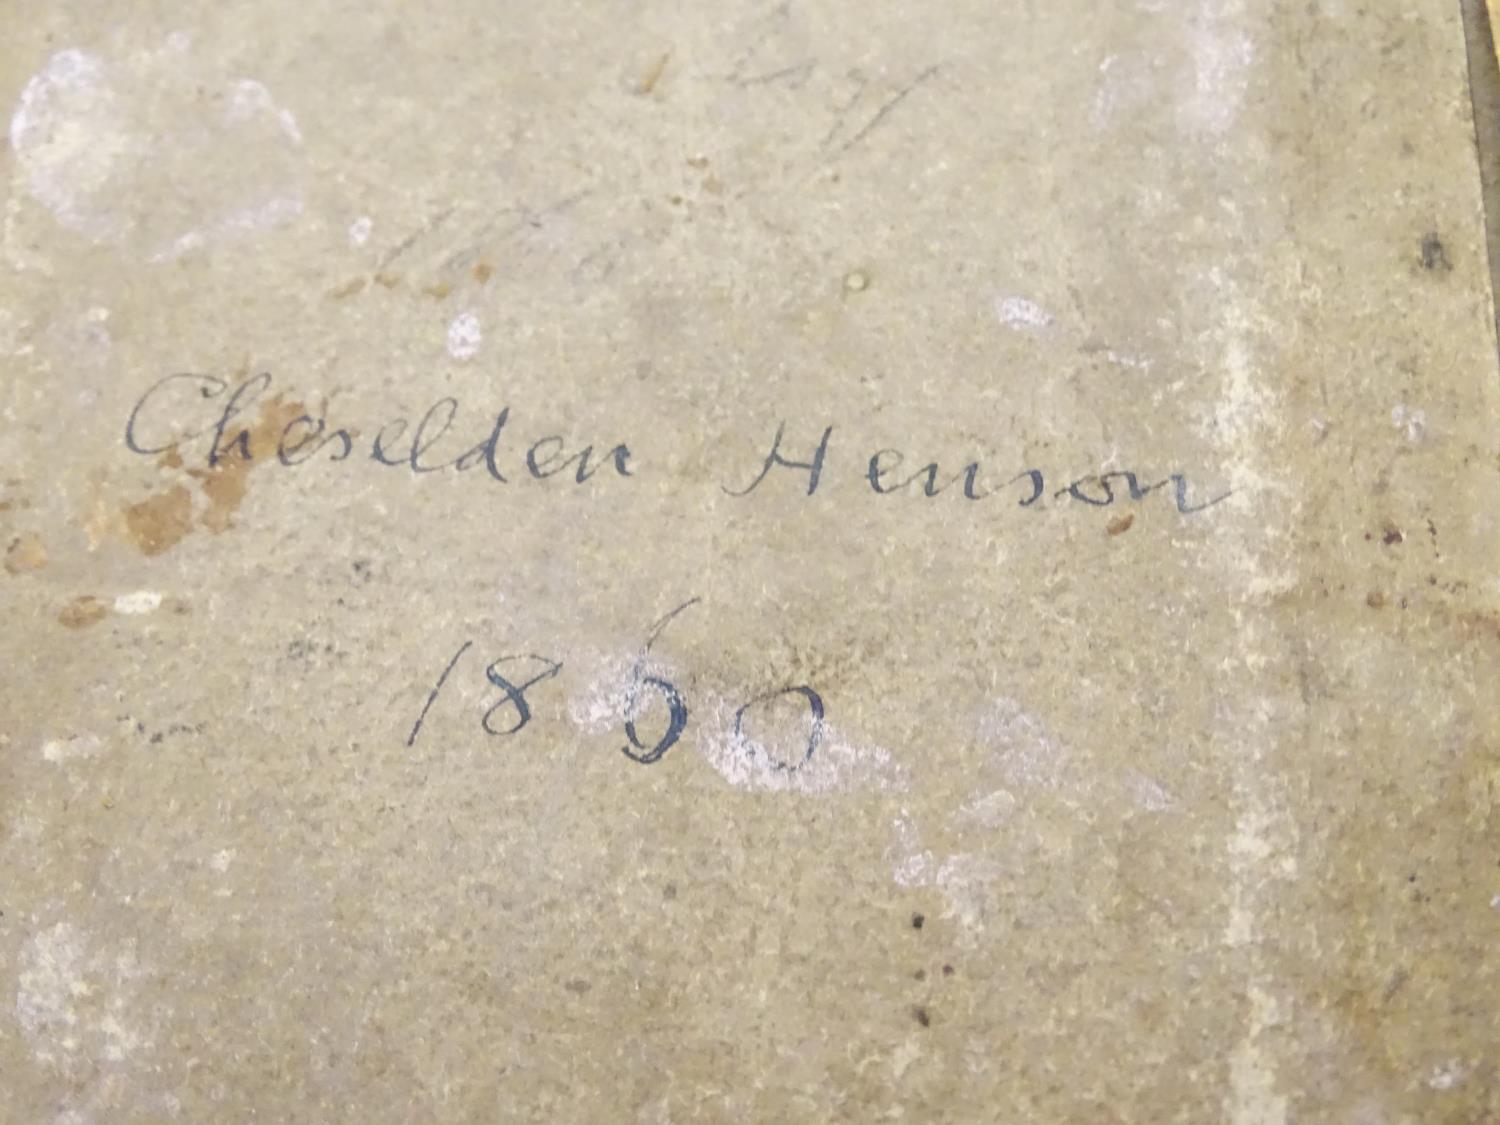 Cheselden Henson
1860